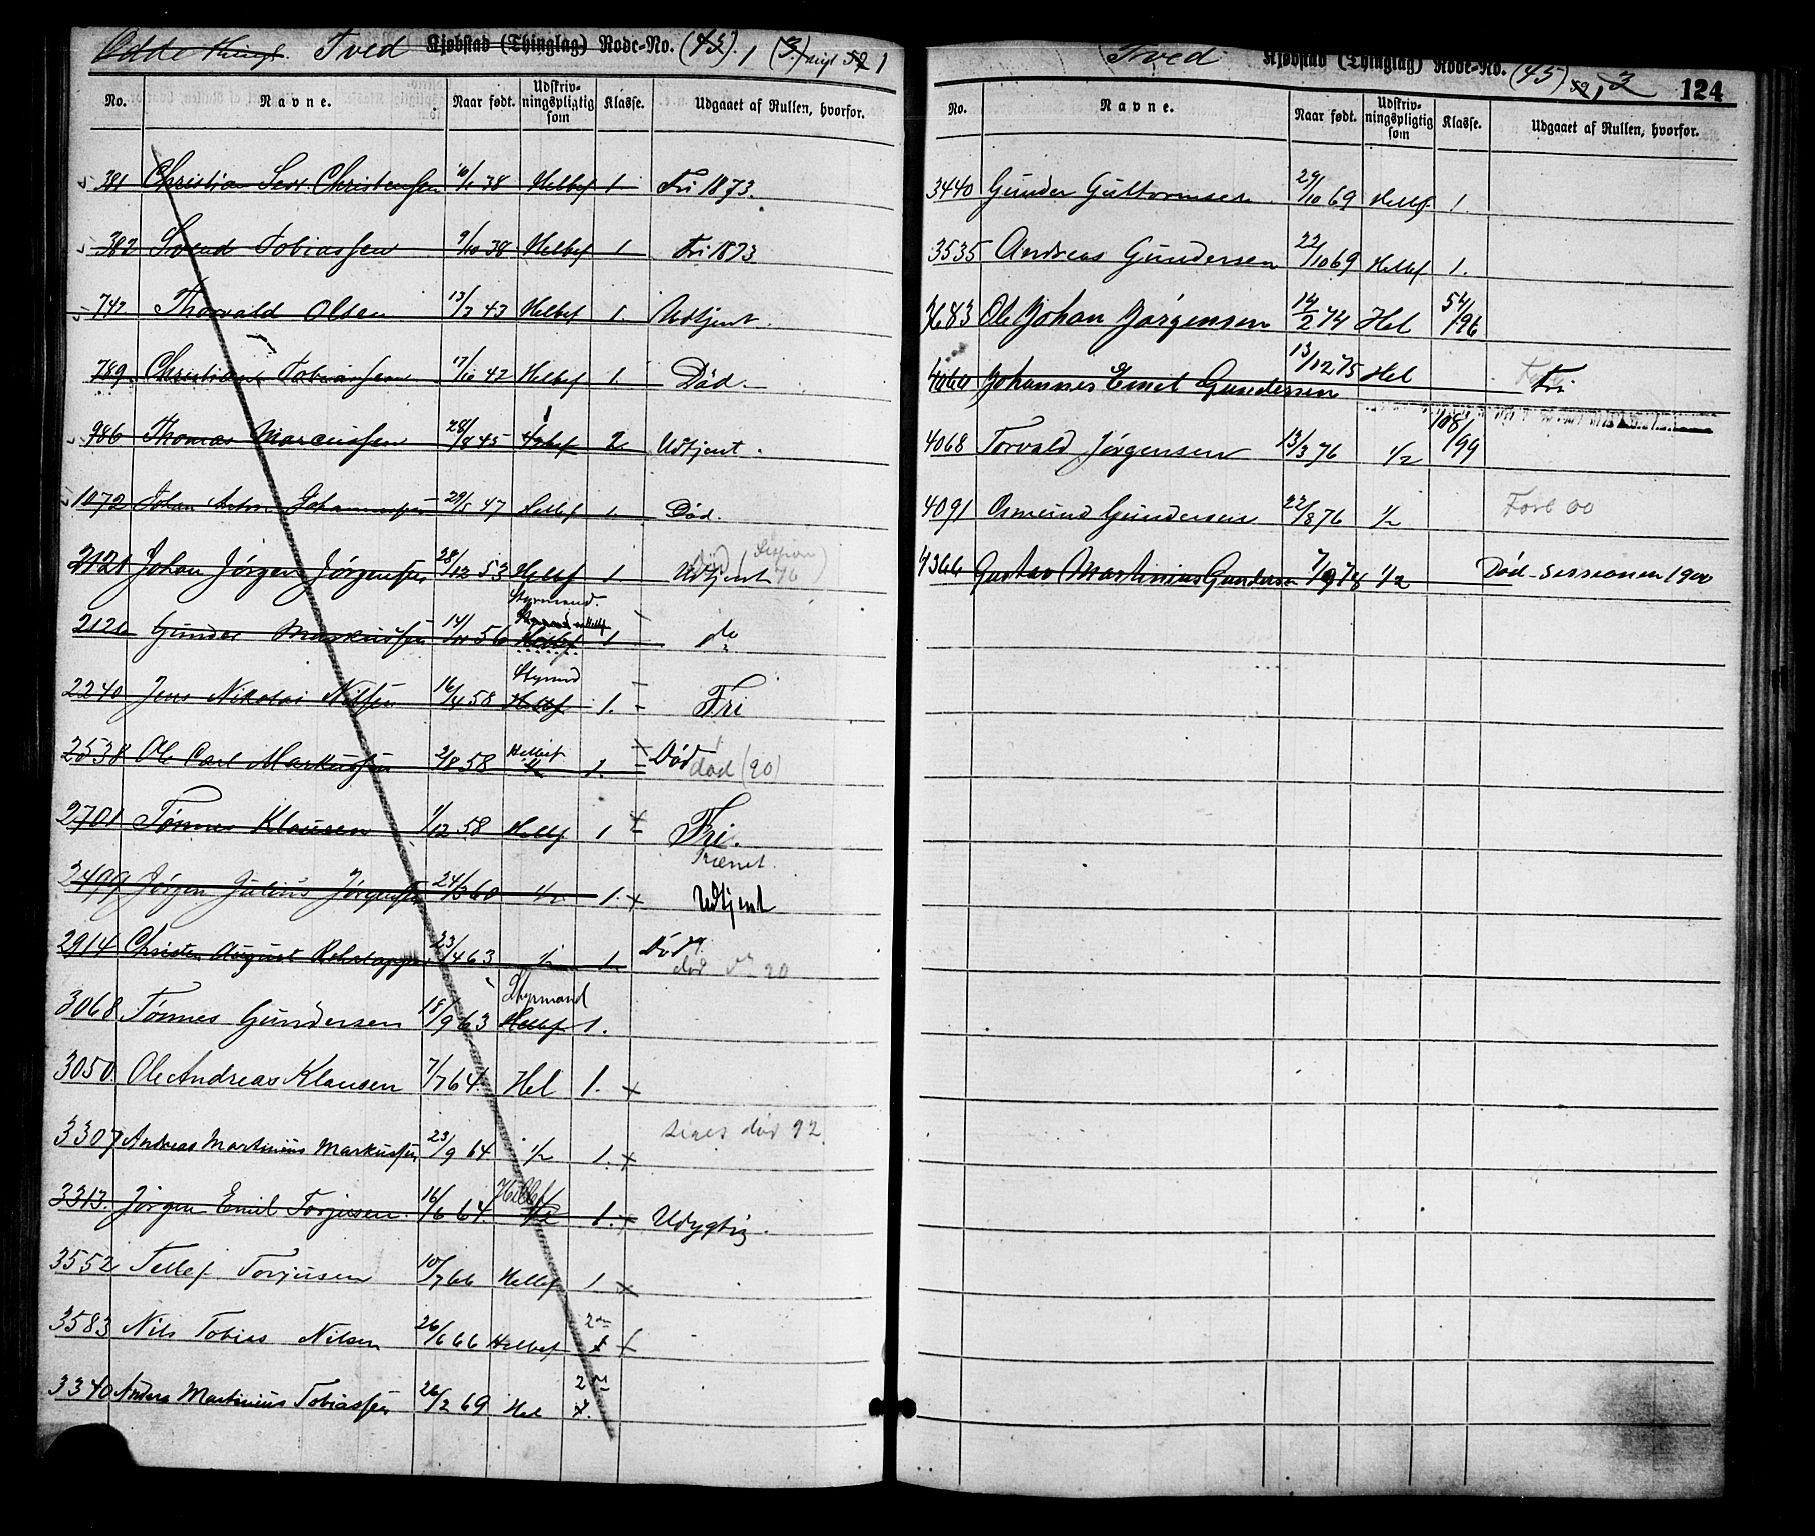 Odde Tved Kjøbstad (Thinglag) Rode-No. (45). 1 (3) 52 1
No. Navne. Naar født. Udskrivningspligtig som Klasse. Udgaaet af Rullen, hvorfor.
381 Christian Christensen 38 Helbef 1 Fri 1873.
382 Svend Tobiassen 9/10 38 Helbef 1. Fri 1873
742 Thorvald Olsen 13/7 43 Helbef 1. Udtjent.
789. Christian Tobiassen 17/10 42 Helbef 1. Død.
986 Thomas Marcussen 28/8 45 2. Udtjent.
1072 Johan Anton Johannessen 29/5 47 Helbef 1 Død.
2121 Johan Jørgen Jørgensen 28/12 53 Helbef 1 Udtjent
Styrmand.
2126 Gunder Markussen 14/11 56 Helbef 1 do
Styrmd
2240 Jens Nikolai Nilsen 16/4 58 Helbef 1. Fri
2538 Ole Carl Markussen 2/8 58 Helbef 1/2 1. Død død (90)
2701 Tønnes Klausen 1/12 58 Helbf 1 Fri.
2499 Jørgen Julius Jørgensen 24/3 60 1/2 1. Udtjent
2914 Christen August 23/4 63 1/2 1. Død. død 90
Styrmand
3068 Tønnes Gundersen 18/9 63 Helbf 1.
3050. Ole Andreas Klausen 7/7 64. Hel 1. x
siges død 92.
3307 Andreas Martinius Markussen 23/9 64 1/2 1. x
3313. Jørgen Emil Torjusen. 16/6 64. Helbef 1/2 1. x Udygtig.
3552 Tellef Torjusen 10/7 66 Helbef 1. x
3583 Nils Tobias Nilsen 26/6 66 Helbef 2den 1
3340 Anders Martinius Tobiassen 26/2 69 Hel 2den 1.
Tved Kjøbstad (Thinglag) Rode-No. (45) 52, 3 124
No. Navne. Naar født. Udskrivningspligtig som Klasse. Udgaaet af Rullen, hvorfor.
3440 Gunder Guttormsen. 29/10 69 Helbf. 1.
3535 Andreas Gundersen 22/10 69 Helbf 1.
3683 Ole Johan Jørgensen 14/2 74 Hel 54/96
4060 Johannes Emil Gundersen 13/12 75 Hel Fri
4068 Torvald Jørgensen 13/3 76 1/2 108/99
4091 Osmund Gundersen 22/8 76 1/2 Forb 00
4366 Gustav Martinius Gundersen 7/9 78 1/2 Død - sessionen 1900